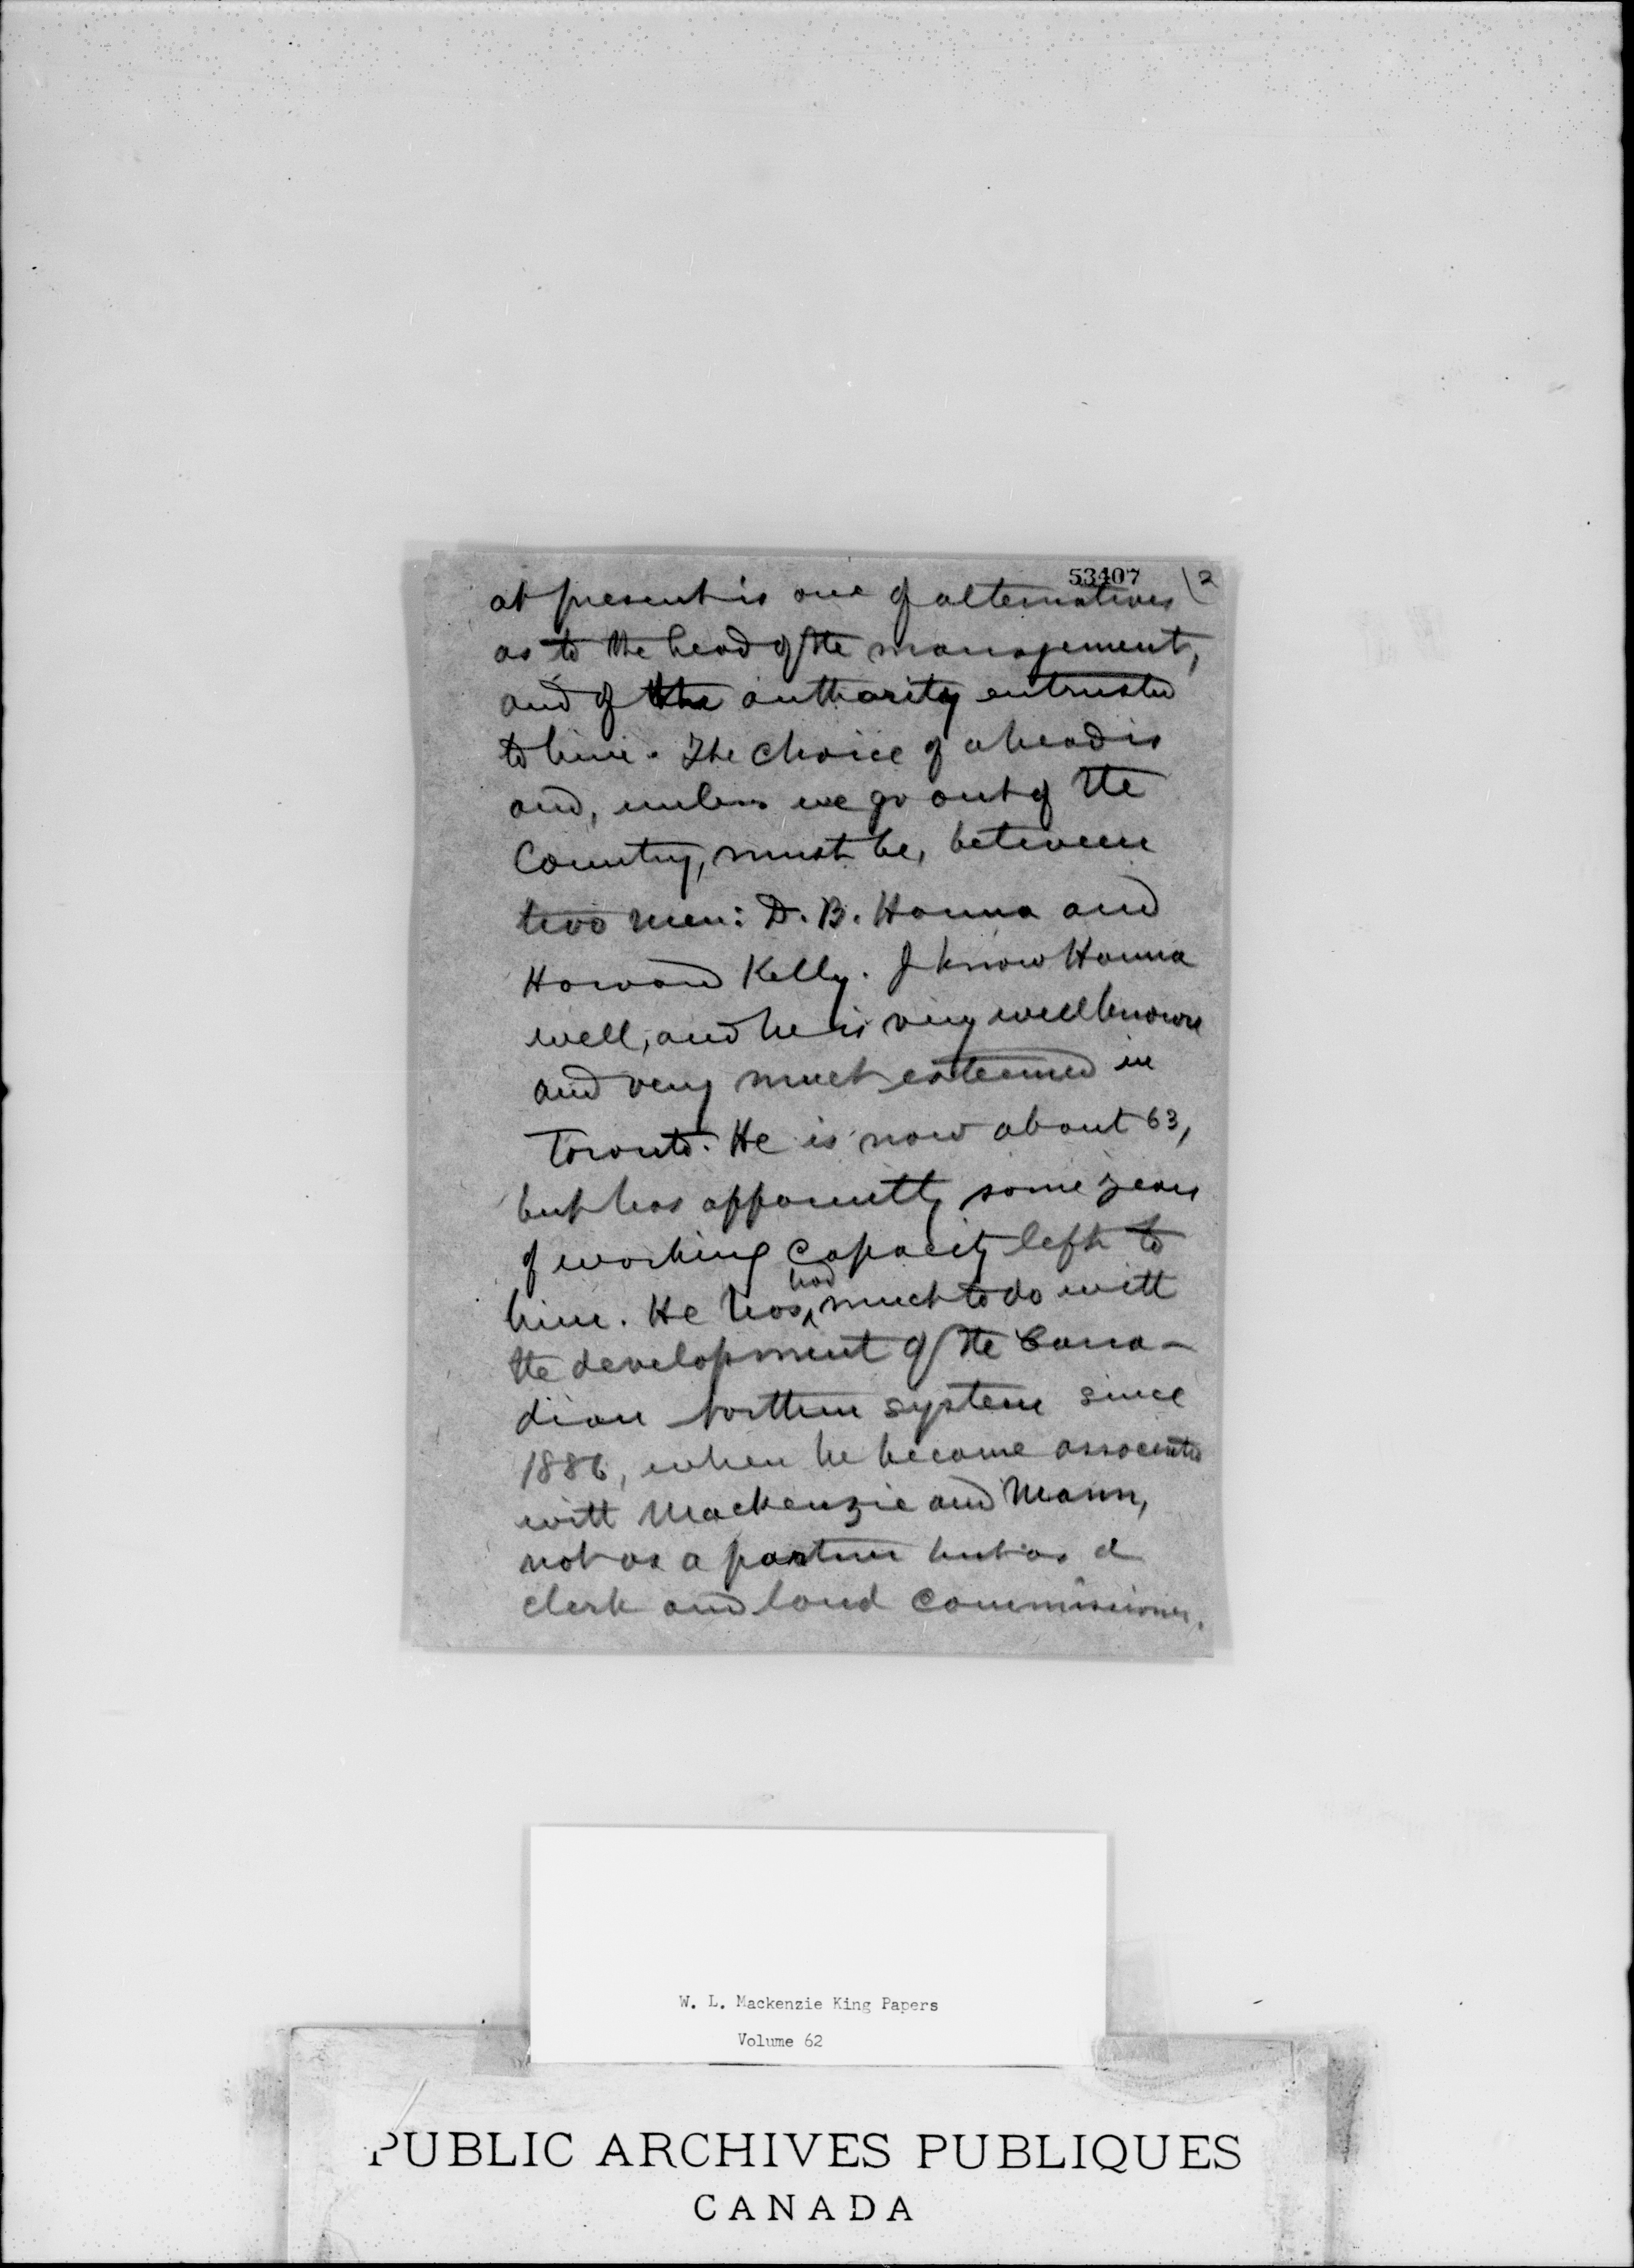 53407 2
at present is one of alternatives
as to the head of the management,
and of the authority entrusted
to him. The choice of a head is
and, unless we go out of the
Country, must be, between
two men: D. B. Hanna and
Howard Kelly. I know Hanna
well, and he is very well known
and very much esteemed in
Toronto. He is now about 63,
but has apparently some years
of working capacity left to
him. He has had much to do with
the development of the Cana-
dian Northern system since
1886, when he became associated
with Mackenzie and Mann,
not as a partner but as a
clerk and land Commissioner.
W. L. Mackenzie King Papers
Volume 62
PUBLIC ARCHIVES PUBLIQUES
CANADA